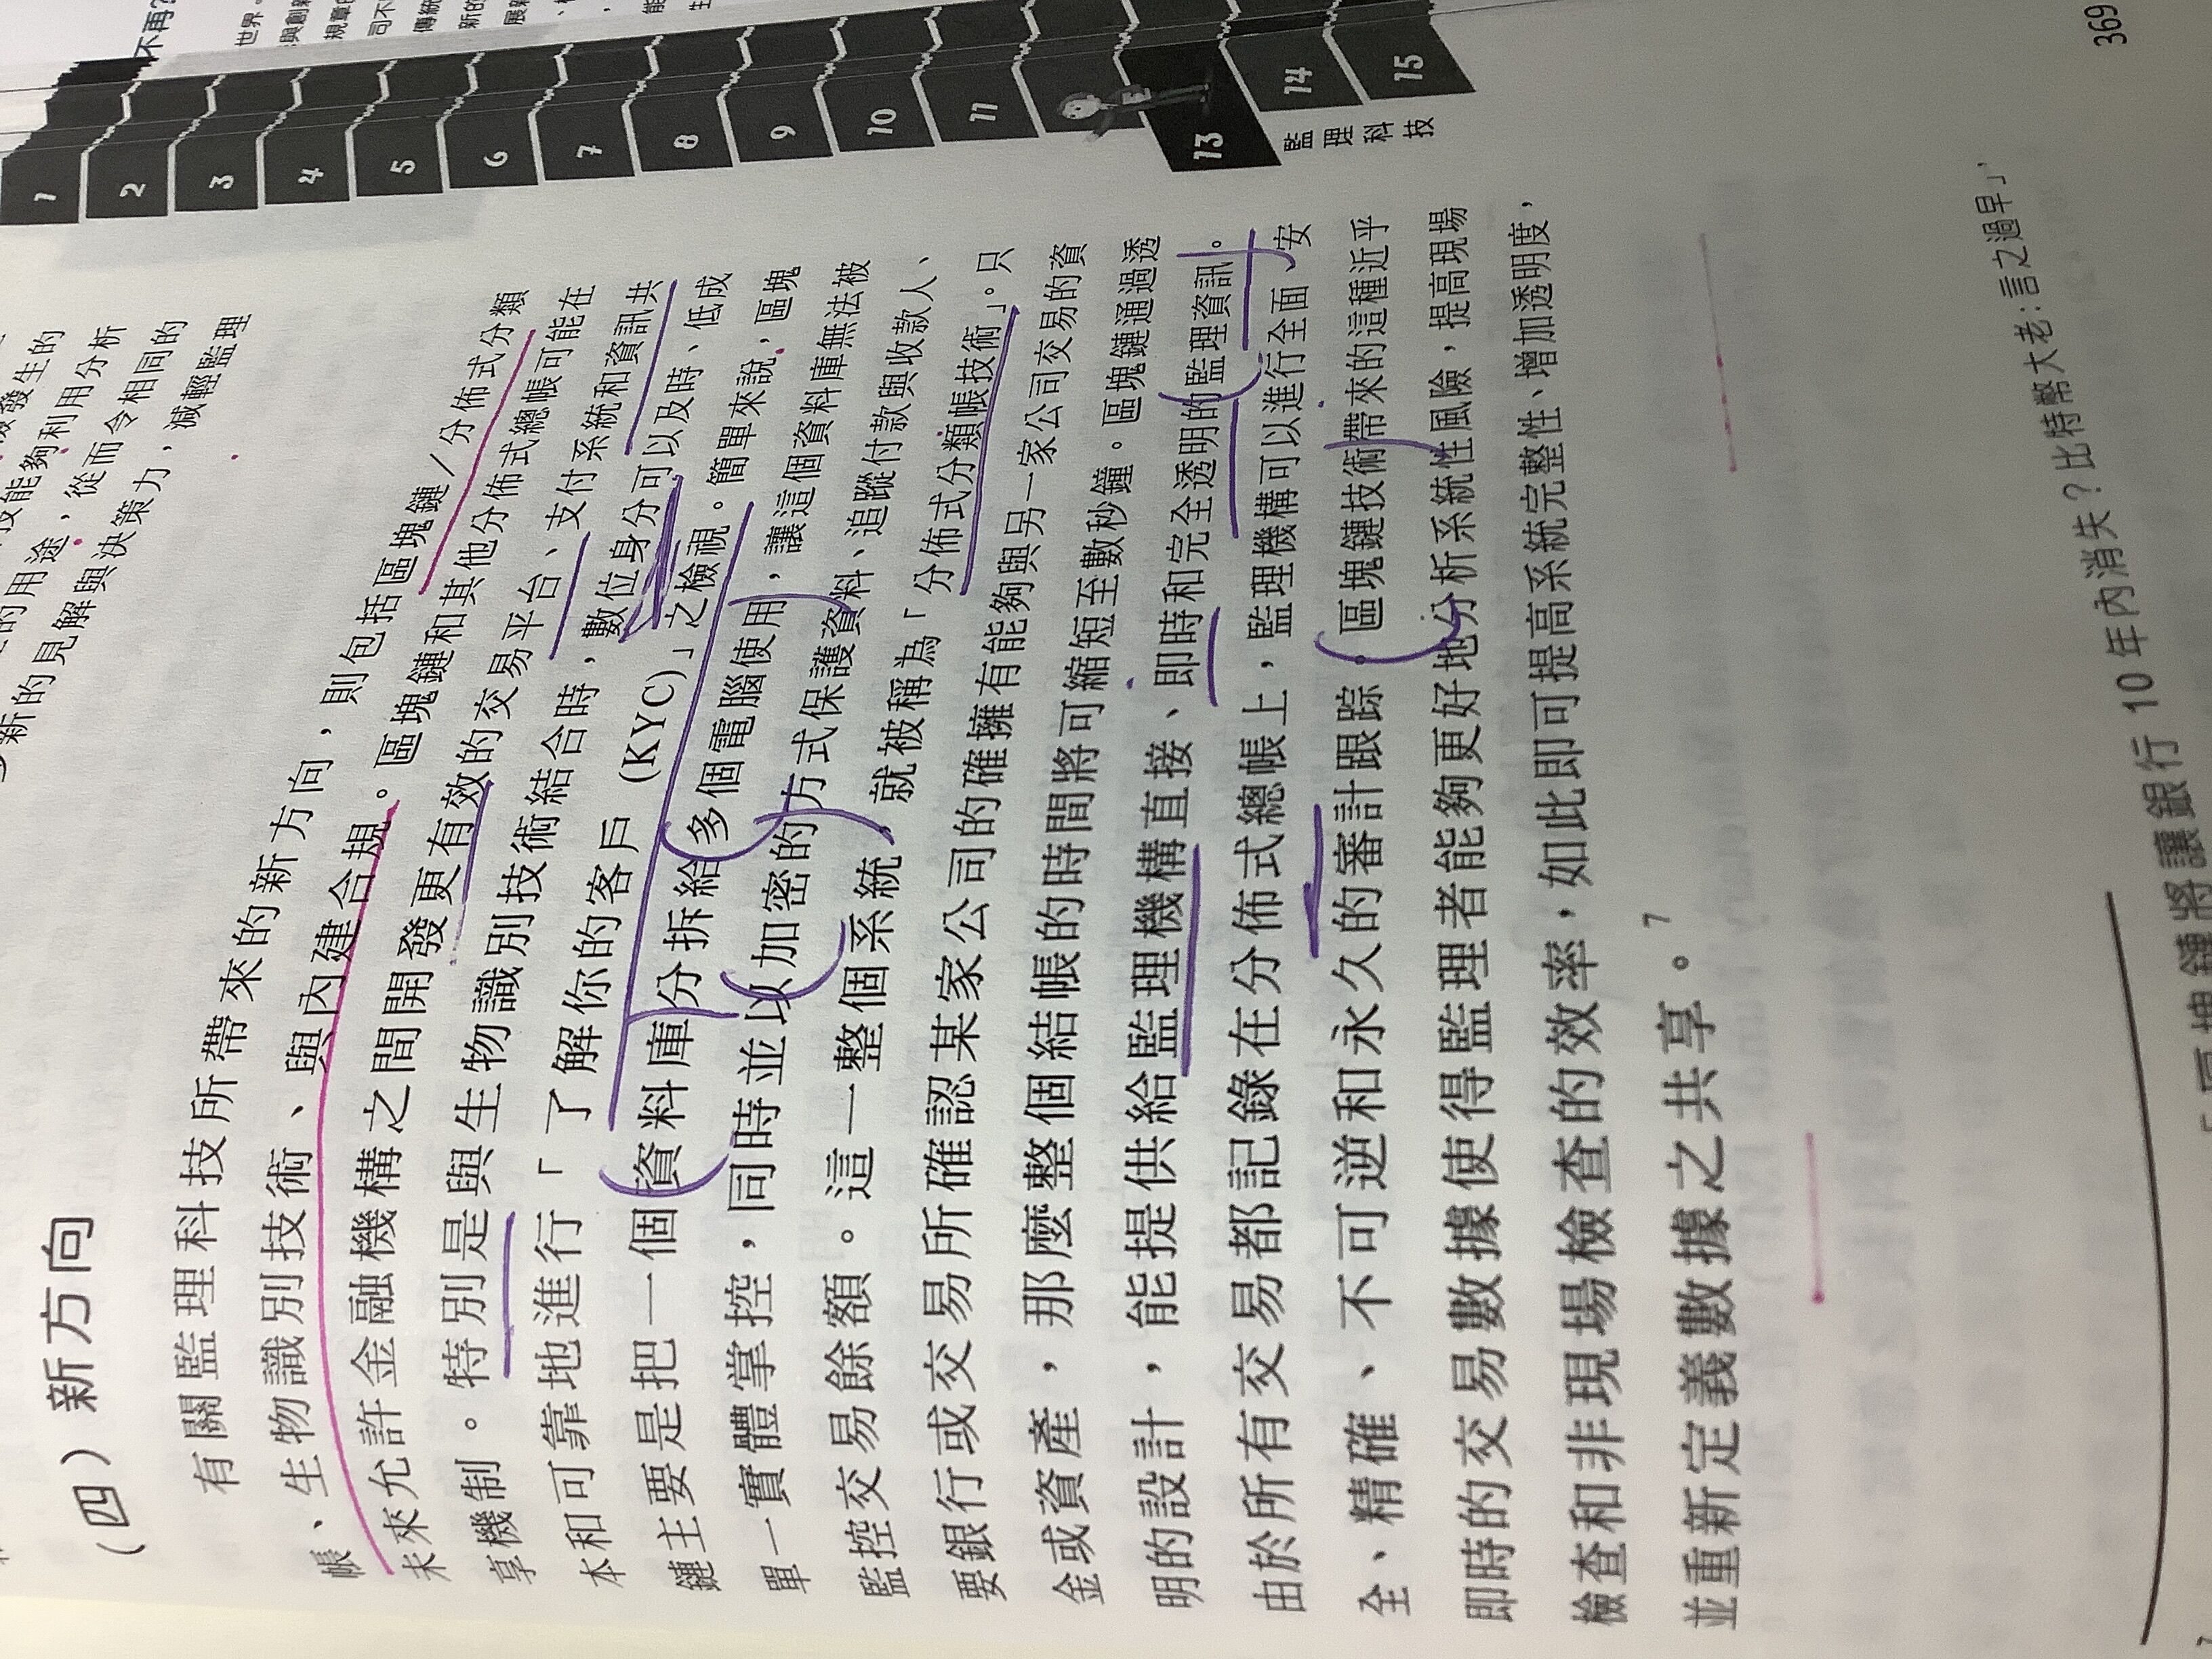 不再?
世界。
規章
傳統
新的
發生的
技能夠利用分析
的用途，從而令相同的
新的見解與決策力，減輕監理
1
2
3
4
5
6
7
8
9
10
11
13
14
15
監理科技
（四）新方向
有關監理科技所帶來的新方向，則包括區塊鏈／分佈式分類
帳、生物識別技術、與內建合規。區塊鏈和其他分佈式總帳可能在
未來允許金融機構之間開發更有效的交易平台、支付系統和資訊共
享機制。特別是與生物識別技術結合時，數位身分可以及時、低成
本和可靠地進行「了解你的客戶 (KYC)」之檢視。簡單來說，區塊
鏈主要是把一個資料庫分拆給多個電腦使用，讓這個資料庫無法被
單一實體掌控，同時並以加密的方式保護資料、追蹤付款與收款人、
監控交易餘額。這一整個系統，就被稱為「分佈式分類帳技術」。只
要銀行或交易所確認某家公司的確擁有能夠與另一家公司交易的資
金或資產，那麼整個結帳的時間將可縮短至數秒鐘。區塊鏈通過透
明的設計，能提供給監理機構直接、即時和完全透明的監理資訊。
由於所有交易都記錄在分佈式總帳上，監理機構可以進行全面、安
全、精確、不可逆和永久的審計跟踪。區塊鏈技術帶來的這種近乎
即時的交易數據使得監理者能夠更好地分析系統性風險，提高現場
檢查和非現場檢查的效率，如此即可提高系統完整性、增加透明度，
並重新定義數據之共享。7
7 「區塊鏈將讓銀行 10 年內消失？比特幣大老：言之過早」，
369